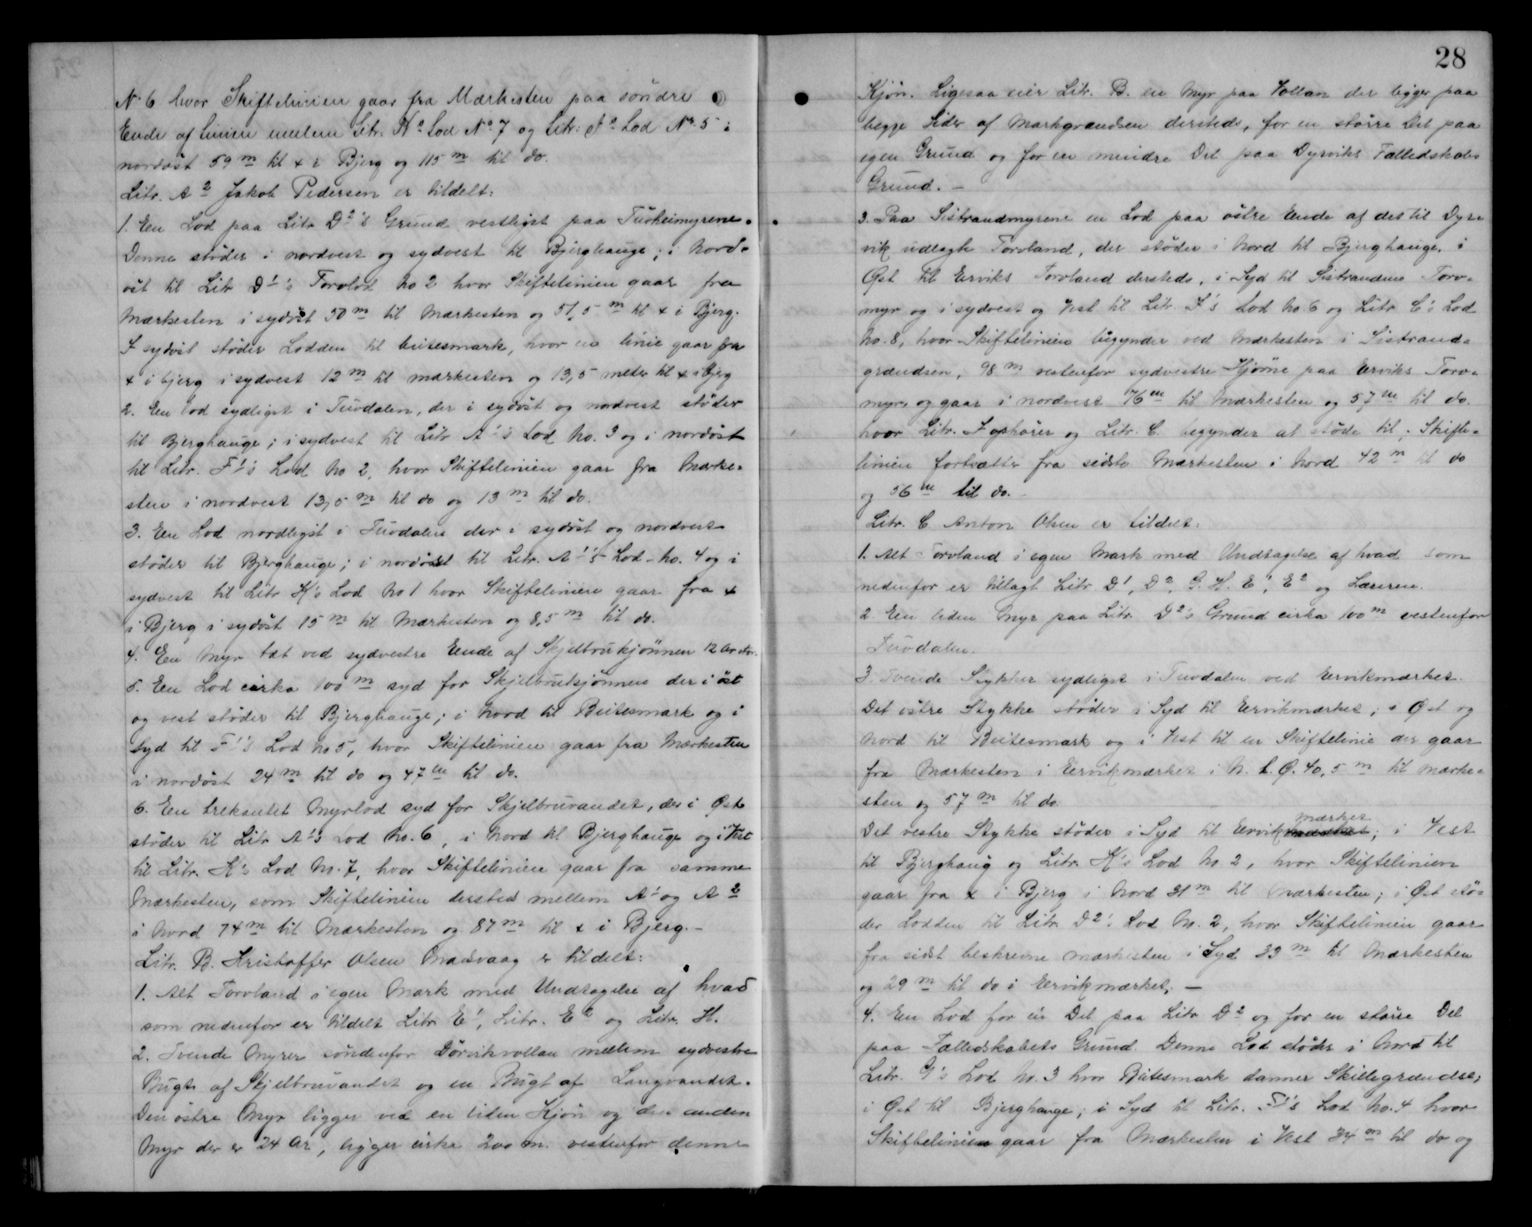 No 6 hvor Skiftelinien gaar fra Mærkesten paa søndre
Ende af linien mellem Litr. H2 Lod No 7 og Litr. F2 Lod No 5 i
nordøst 59 m til x i Bjerg og 115 m til do.
Litr. A2 Jakob Pedersen er tildelt:
1. En Lod paa Litr D2's Grund vestligst paa Turheimyrene.
Denne støder i nordvest og sydvest til Bjerghauge; i Nord-
øst til Litr D1's Torvlod No 2 hvor Skiftelinien gaar fra
Mærkesten i sydøst 50 m til Mærkesten og 51,5 m til x i Bjerg.
I sydøst støder Lodden til beitesmark, hvor en linie gaar fra
x i bjerg i sydvest 12 m til mærkesten og 13,5 meter til x i Bjerg
2. En lod sydligst i Tuvdalen, der i sydøst og nordvest støder
til Bjerghauge; i sydvest til Litr A1's Lod No. 3 og i nordøst
til Litr. F1's Lod No 2, hvor Skiftelinien gaar fra Mærke-
sten i nordvest 13,5 m til do og 13 m til do.
3. En Lod nordligst i Tuvdalen der i sydøst og nordvest
støder til Bjerghauge; i nordøst til Litr. A1's Lod No. 4 og i
sydvest til Litr K's Lod No 1 hvor Skiftelinien gaar fra x
i Bjerg i sydøst 15 m til Mærkesten og 8,5 m til do.
4. En Myr tæt ved sydvestre Ende af Skjelbrukjønnen 12 Ar stor.
5. En Lod cirka 100 m syd for Skjelbrutjønnen der i øst
og vest støder til Bjerghauge; i Nord til Beitesmark og i
Syd til F1's Lod No 5, hvor Skiftelinien gaar fra Mærkesten
i nordøst 24 m til do og 47 m til do.
6. En trekantet Myrlod syd for Skjelbruvandet, der i Øst
støder til Litr A1's Lod No. 6, i Nord til Bjerghauge og i Vest
til Litr. K's Lod No. 7, hvor Skiftelinien gaar fra samme
Mærkesten, som Skiftelinien dersted mellem A1 og A2
i Nord 74 m til Mærkesten og 87 m til x i Bjerg. -
Litr. B. Kristoffer Olsen Maasvaag er tildelt:
1. Alt Torvland i egen Mark med Undtagelse af hvad
som nedenfor er tildelt Litr E1, Litr. E2 og Litr. H.
2. Tvende Myrer søndenfor Dørvikvollan mellem sydvestre
Bugt af Skjelbruvandet og en Bugt af Langvandet.
Den østre Myr ligger ved en liden Kjøn og den anden
Myr der er 24 Ar, ligger cirka 200 m. vestenfor denne
28
Kjøn. Ligesaa eier Litr. B. en Myr paa Vollan der ligger paa
begge Sider af Markgrændsen dersteds, for en større Del paa
egen Grund og for en mindre Del paa Dyrviks Fælledskabs
Grund. -
3. Paa Sistrandmyrene en Lod paa østre Ende af det til Dyr-
vik udlagte Torvland, der støder i Nord til Bjerghauge, i
Øst til Erviks Torvland dersteds, i Syd til Sistrandens Torv-
myr og i sydvest og Vest til Litr F's Lod No. 6 og Litr C's Lod
No. 8, hvor Skiftelinien begynder ved Mærkesten i Sistrand-
grændsen, 98 m vestenfor sydvestre Hjørne paa Erviks Torv-
myr, og gaar i nordvest 76 m til Mærkesten og 57 m til do.
hvor Litr. F ophører og Litr. C. begynder at støde til; Skifte-
linien fortsætter fra sidste Mærkesten i Nord 42 m til do
og 56 m til do. -
Litr. C Anton Olsen er tildelt:
1. Alt Torvland i egen Mark med Undtagelse af hvad som
nedenfor er tillagt Litr D1, D2, G. H. E1, E2 og Læreren.
2. En liden Myr paa Litr. D2's Grund cirka 100 m vestenfor
Tuvdalen.
3. Tvende Stykker sydligst i Tuvdalen ved Ervikmærket.
Det østre Stykke støder i Syd til Ervikmærket; i Øst og
Nord til Beitesmark og i Vest til en Skiftelinie der gaar
fra Mærkesten i Ervikmærket i N. t. Ø. 40,5 m til mærke-
sten og 57 m til do.
Det vestre Stykke støder i Syd til Ervikmærket; i Vest
til Bjerghaug og Litr. K's Lod No 2, hvor Skiftelinien
gaar fra x i Bjerg i Nord 21 m til Mærkesten; i Øst stø-
der Lodden til Litr. D2's Lod No. 2, hvor Skiftelinien gaar
fra sidst beskrevne mærkesten i Syd 23 m til Mærkesten
og 29 m til do i Ervikmærket. -
4. En Lod for en Del paa Litr D2 og for en større Del
paa Fælledskabets Grund. Denne Lod støder i Nord til
Litr. G's Lod No. 3 hvor Beitesmark danner Skillegrændse;
i Øst til Bjerghauge; i Syd til Litr. F1's Lod No. 4 hvor
Skiftelinien gaar fra Mærkesten i Vest 34 m til do og